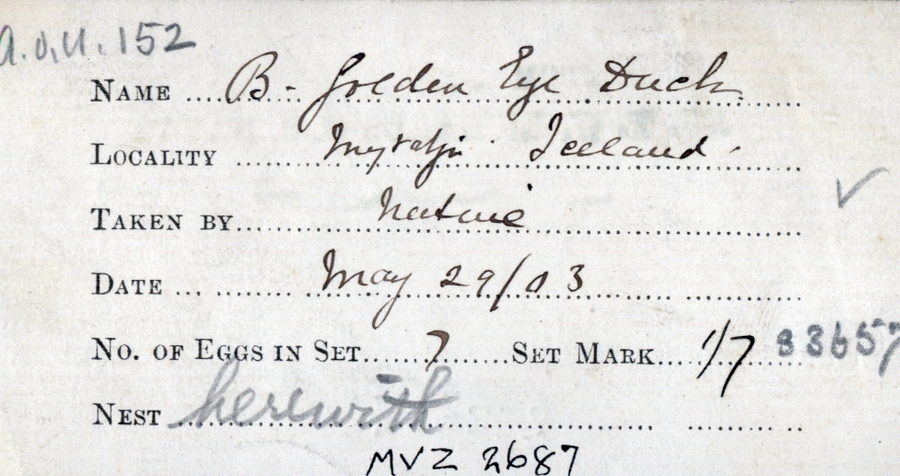 A.O.U. 152
NAME .... B- Golden Eye Duck
LOCALITY .... Myvatn Iceland.
TAKEN BY .... Native
DATE ... May 29/03
NO. OF EGGS IN SET ..... 7 ...... SET MARK .... 1/7 83657
NEST herewith
MVZ 2687